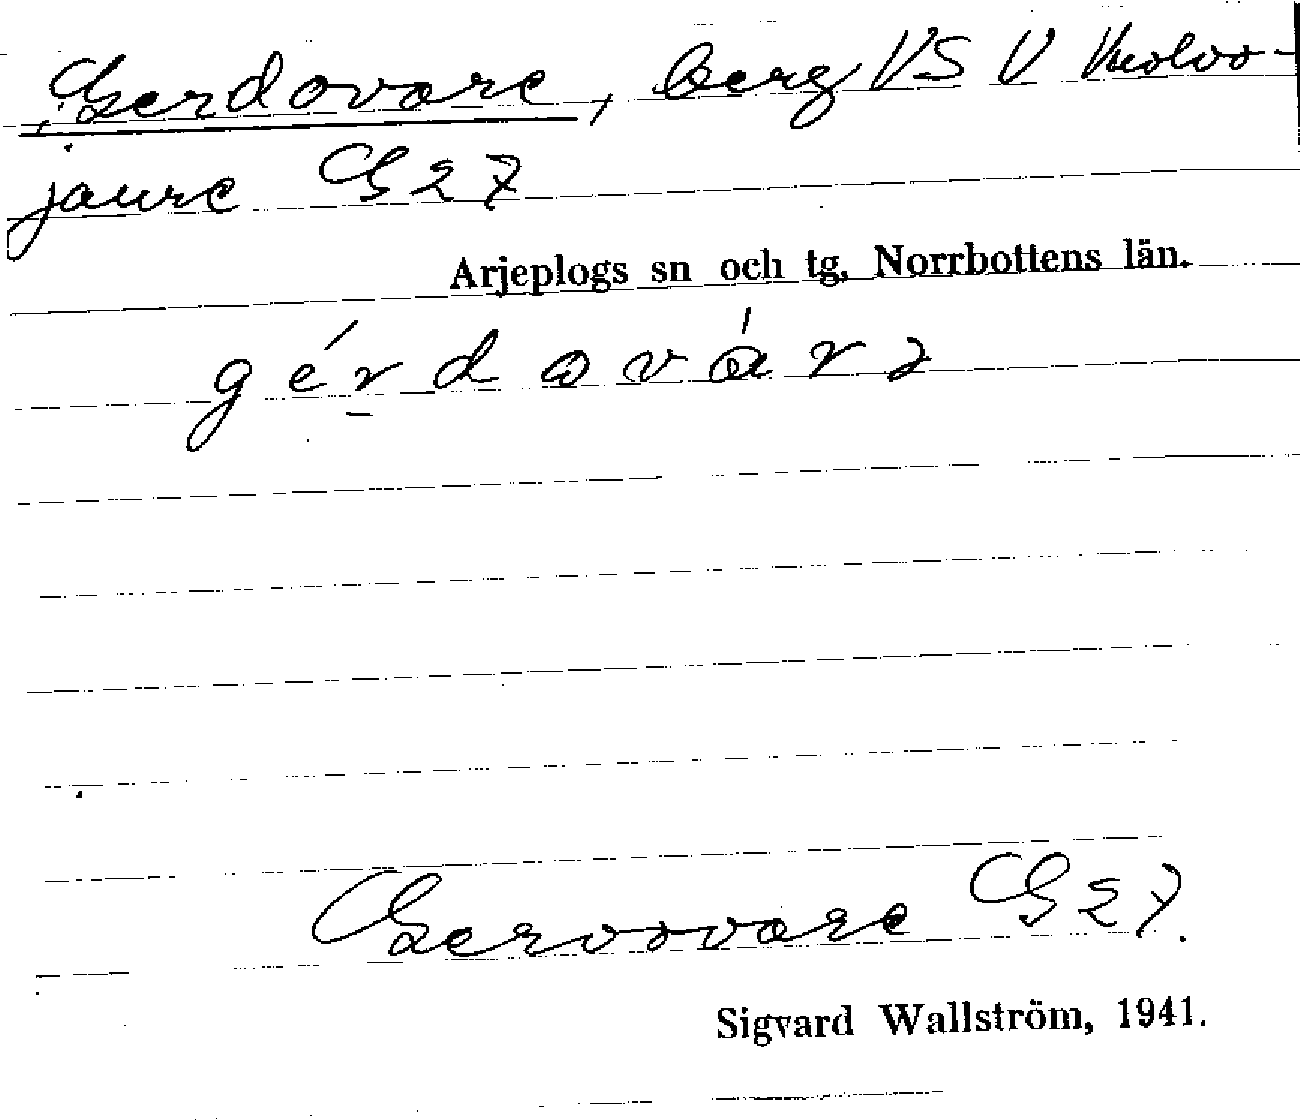 Gerdovare, berg VSV
jaure G27
Arjeplogs sn och tg, Norrbottens län.
gérdovárə
Gervovare G27.
Sigvard Wallström, 1941.